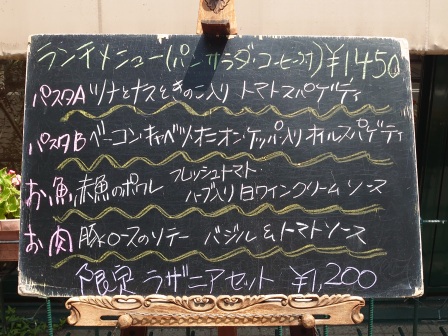 ランチメニュー(パン・サラダ・コーヒー付)¥1,450
パスタA ツナとナスときのこ入り トマトスパゲティ
パスタB ベーコン・キャベツ・オニオン・ケッパ入り オイルスパゲティ
お魚 赤魚のポワレ フレッシュトマト・
ハーブ入り 白ワインクリーム ソース
お肉 豚ロースのソテー バジル&トマトソース
限定 ラザニアセット ¥1,200